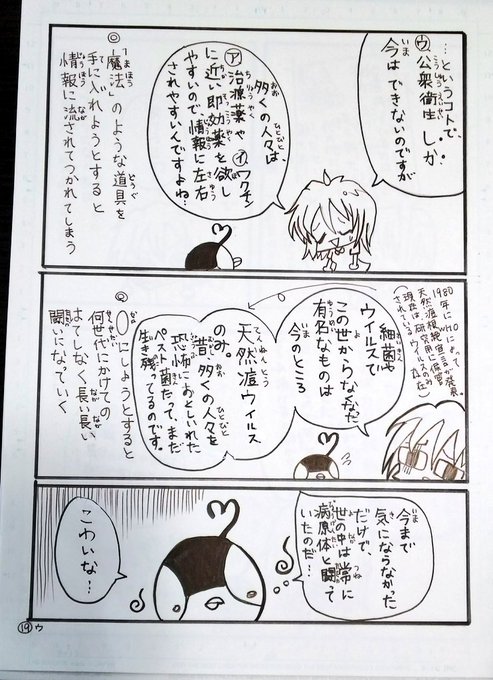 …というコトで、
㋒公衆衛生しか
今はできないのですが
多くの人々は、
㋐治療薬や㋑ワクチン
に近い即効薬を欲し
やすいので情報に左右
されやすいんですよね…
◎
「魔法」のような道具を
手に入れようとすると
情報に流されてつかれてしまう
1980年にWHOによって
天然痘根絶宣言が発表。
細菌や
ウィルスで
この世からなくなった
有名なものは
今のところ
天然痘ウィルス
のみ。
昔、多くの人々を
恐怖におとしいれた
ペスト菌だって、まだ
生き残ってるのです。
◎
0にしようとすると
何世代にかけての
はてしなく長い長い
闘いになっていく
今まで
気にならなかった
だけで、
世の中は常に
病原体と闘って
いたのだ…
こわいな…
⑲ウ